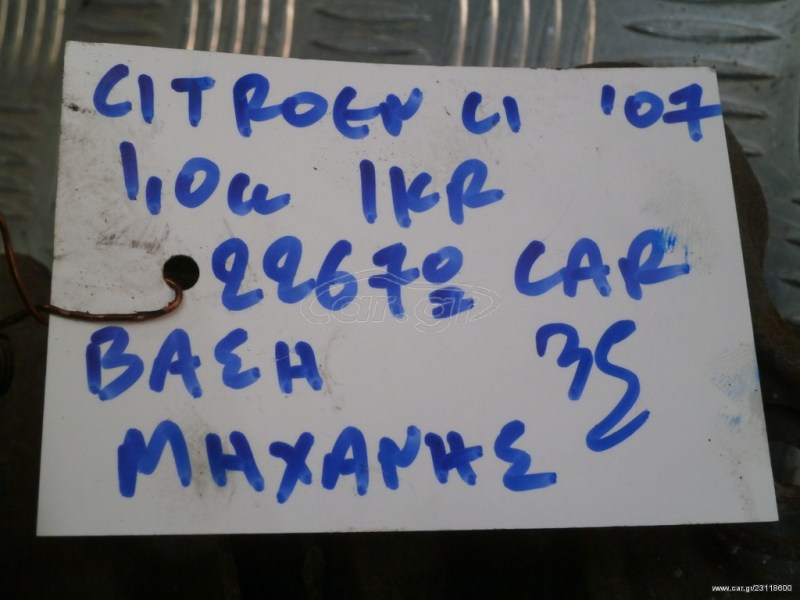 CITROEN C1 '07
1,0cc 1KR
22670 CAR
ΒΑΣΗ
ΜΗΧΑΝΗΣ
car.gr
www.car.gr/23118600